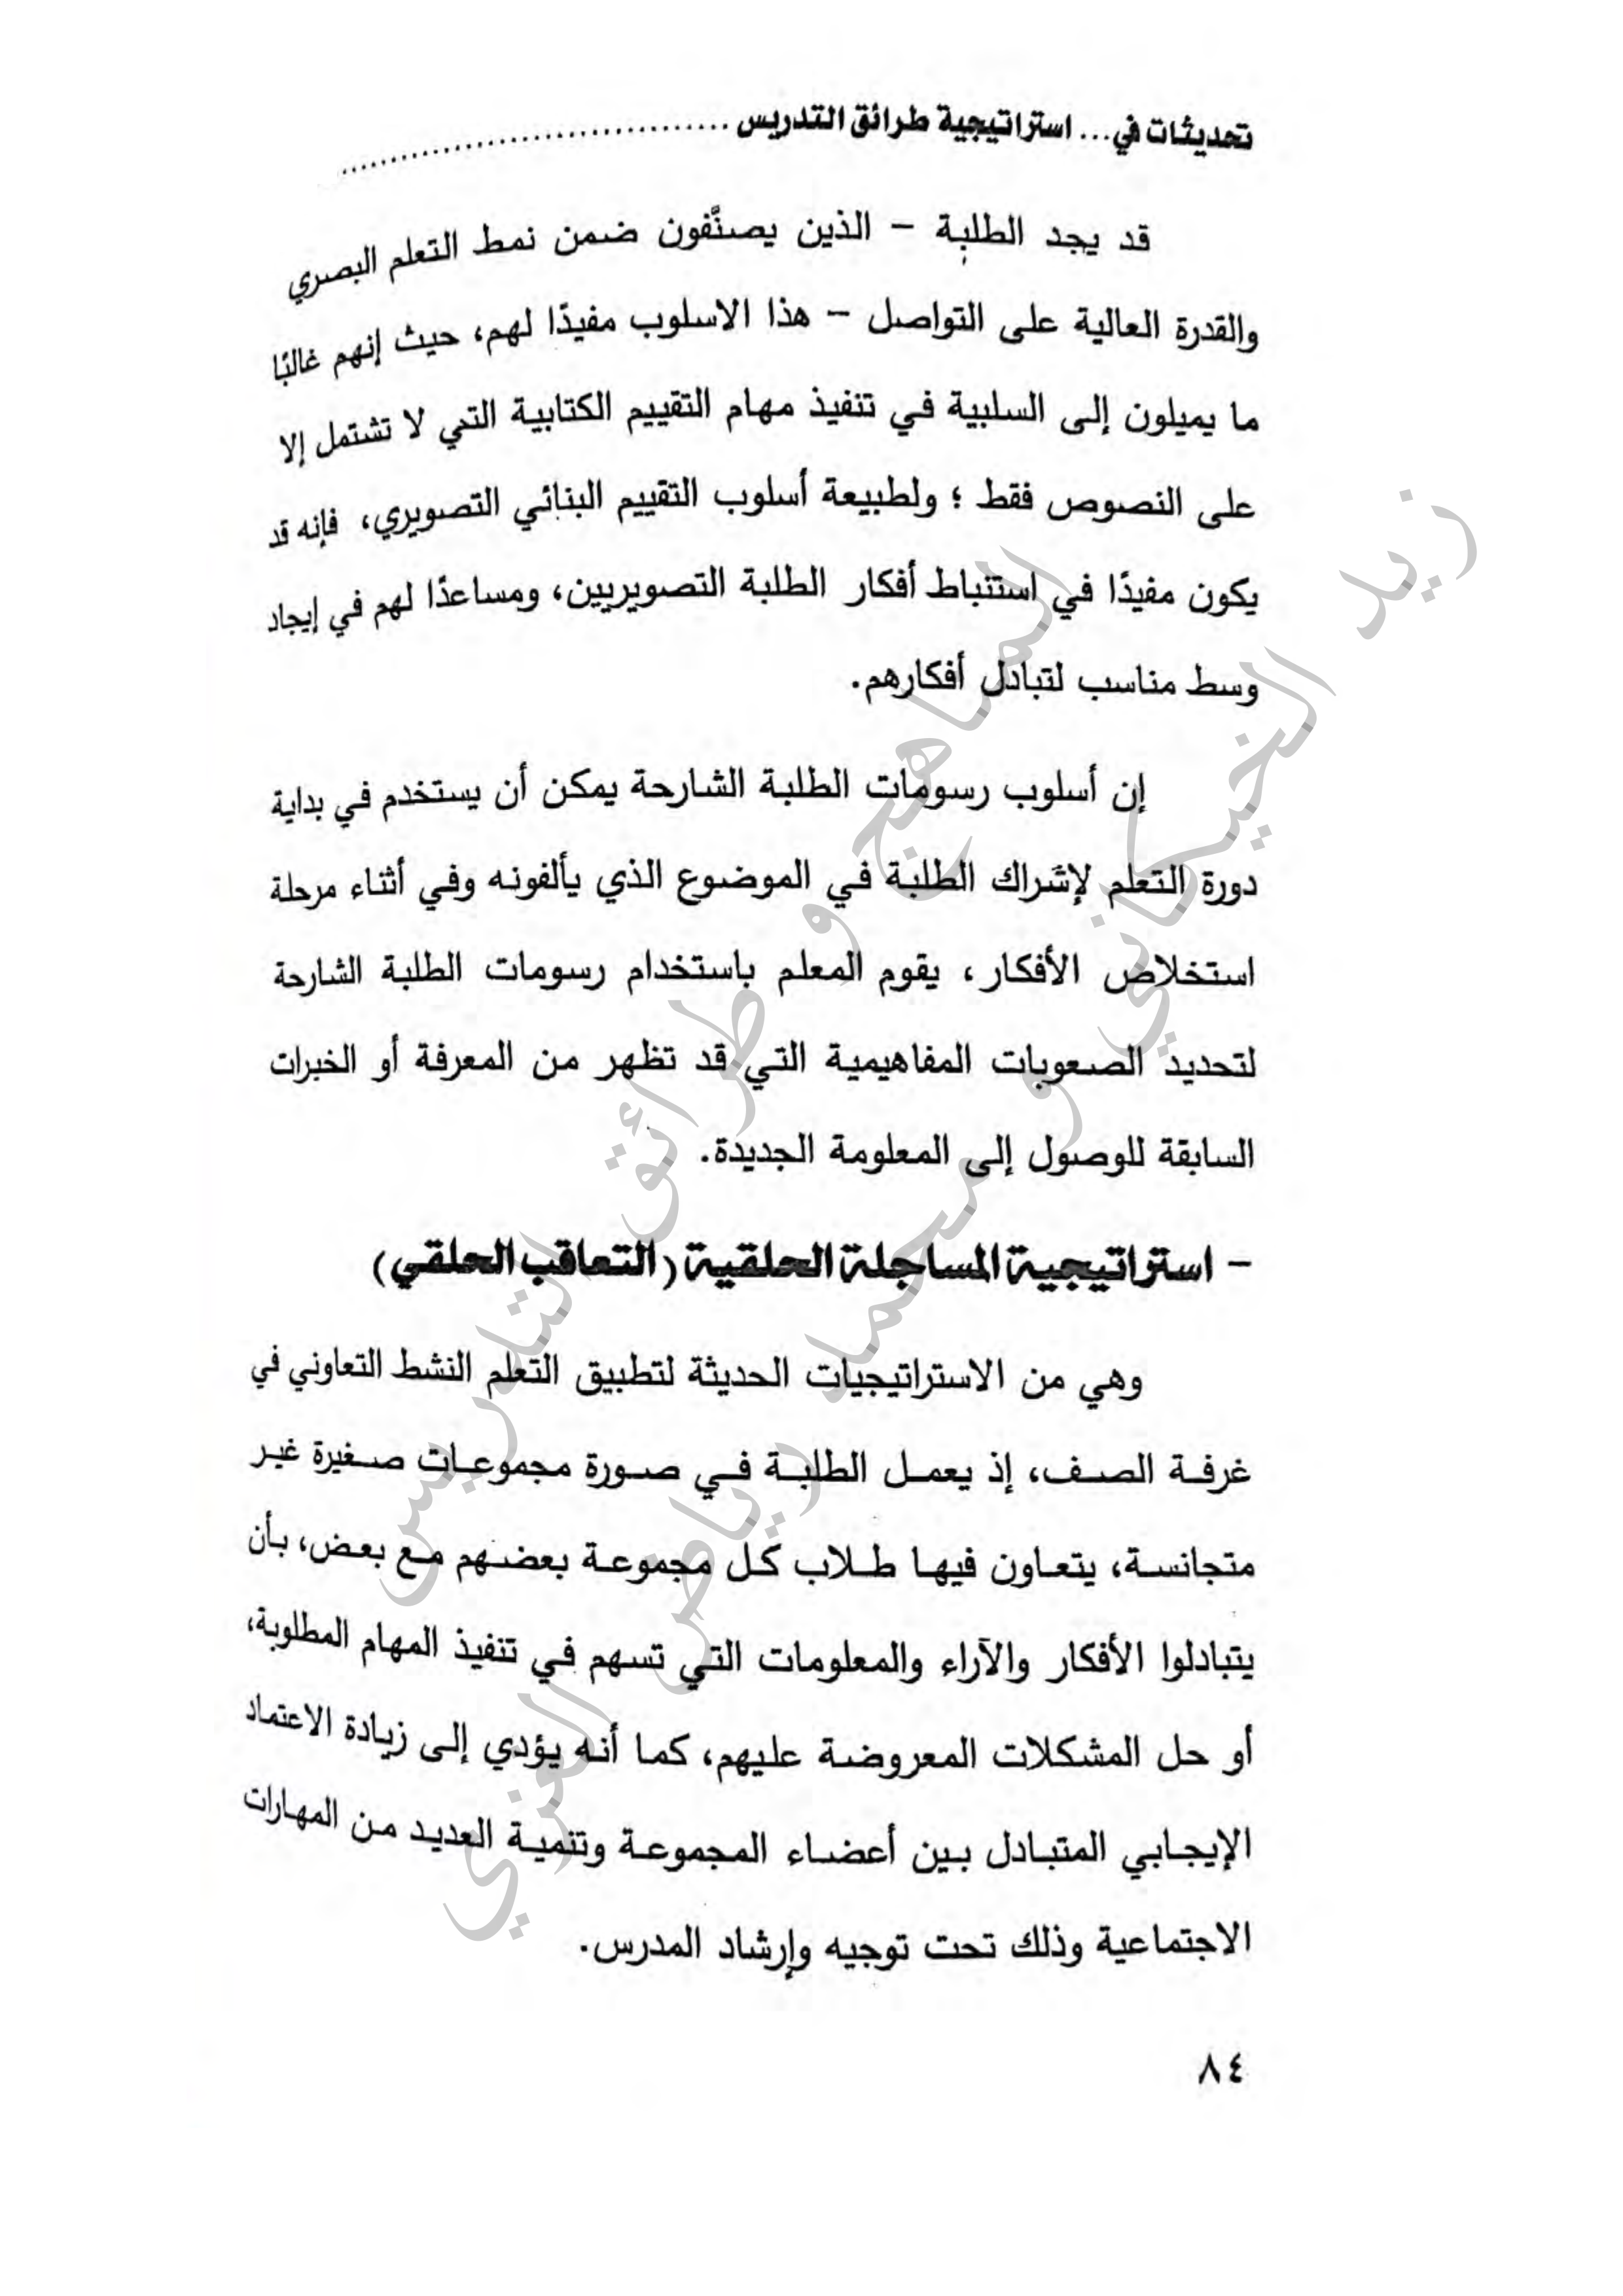 تحديثات في... استراتيجية طرائق التدريس ......................................
قد يجد الطلبة – الذين يصنَّفون ضمن نمط التعلم البصري
والقدرة العالية على التواصل – هذا الاسلوب مفيدًا لهم، حيث إنهم غالبًا
ما يميلون إلى السلبية في تنفيذ مهام التقييم الكتابية التي لا تشتمل إلا
على النصوص فقط ؛ ولطبيعة أسلوب التقييم البنائي التصويري، فإنه قد
يكون مفيدًا في استنباط أفكار الطلبة التصويريين، ومساعدًا لهم في إيجاد
وسط مناسب لتبادل أفكارهم.
إن أسلوب رسومات الطلبة الشارحة يمكن أن يستخدم في بداية
دورة التعلم لإشراك الطلبة في الموضوع الذي يألفونه وفي أثناء مرحلة
استخلاص الأفكار، يقوم المعلم باستخدام رسومات الطلبة الشارحة
لتحديد الصعوبات المفاهيمية التي قد تظهر من المعرفة أو الخبرات
السابقة للوصول إلى المعلومة الجديدة.
- استراتيجية المساجلة الحلقية (التعاقب الحلقي)
وهي من الاستراتيجيات الحديثة لتطبيق التعلم النشط التعاوني في
غرفة الصف، إذ يعمل الطلبة في صورة مجموعات صغيرة غير
متجانسة، يتعاون فيها طلاب كل مجموعة بعضهم مع بعض، بأن
يتبادلوا الأفكار والآراء والمعلومات التي تسهم في تنفيذ المهام المطلوبة،
أو حل المشكلات المعروضة عليهم، كما أنه يؤدي إلى زيادة الاعتماد
الإيجابي المتبادل بين أعضاء المجموعة وتنمية العديد من المهارات
الاجتماعية وذلك تحت توجيه وإرشاد المدرس.
٨٤
المناهج و طرائق التدريس
زيد الخيكاني و محمد رياض العنزي